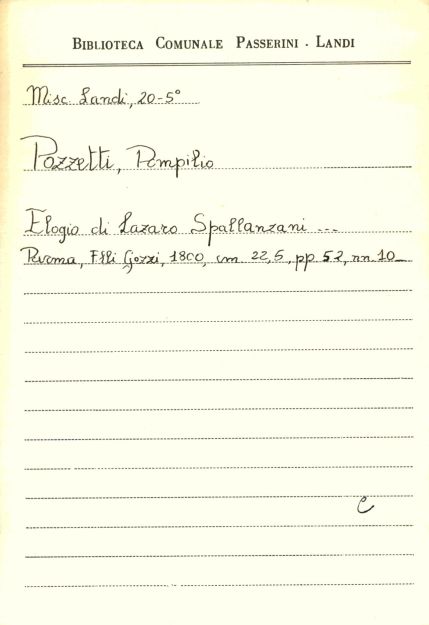 BIBLIOTECA COMUNALE PASSERINI - LANDI
Misc. Landi, 20-5°
Pozzetti, Pompilio
Elogio di Lazaro Spallanzani ...
Parma, F.lli Gozzi, 1800, cm. 22,5, pp 52, nn. 10
C